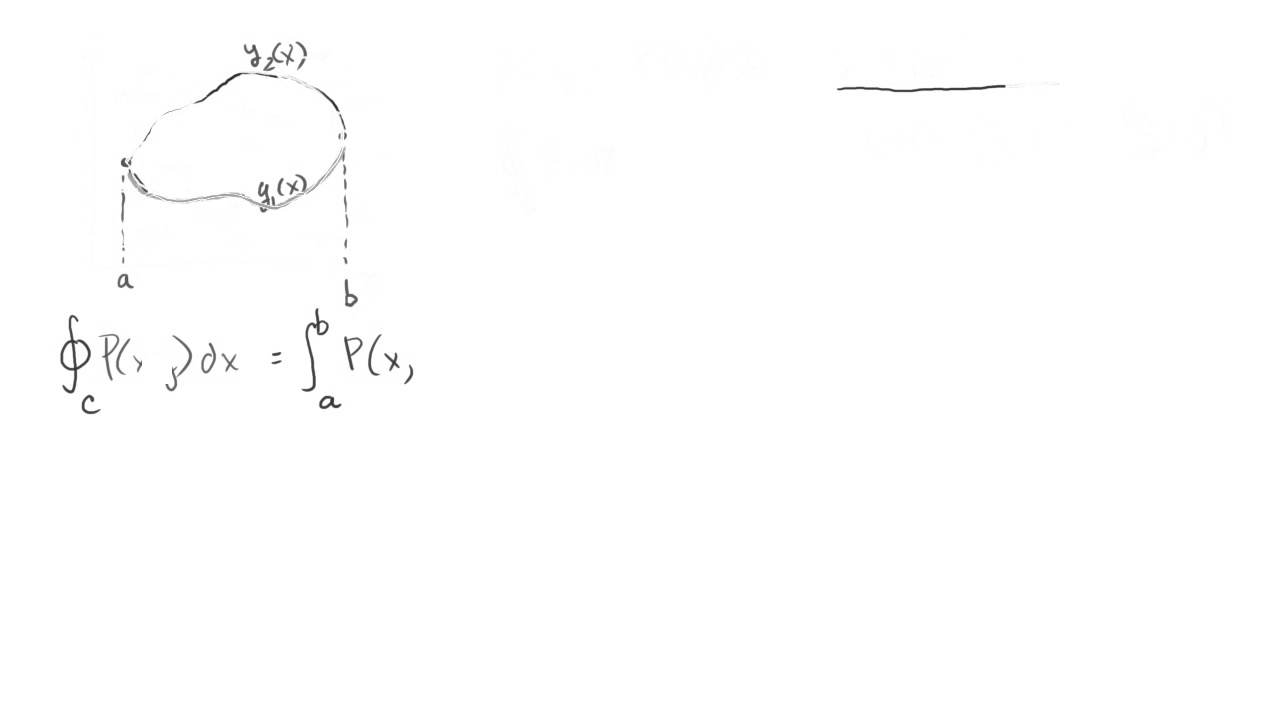 y₂(x)
y₁(x)
a
b
∮_C P(x y) dx = ∫_a^b P(x,